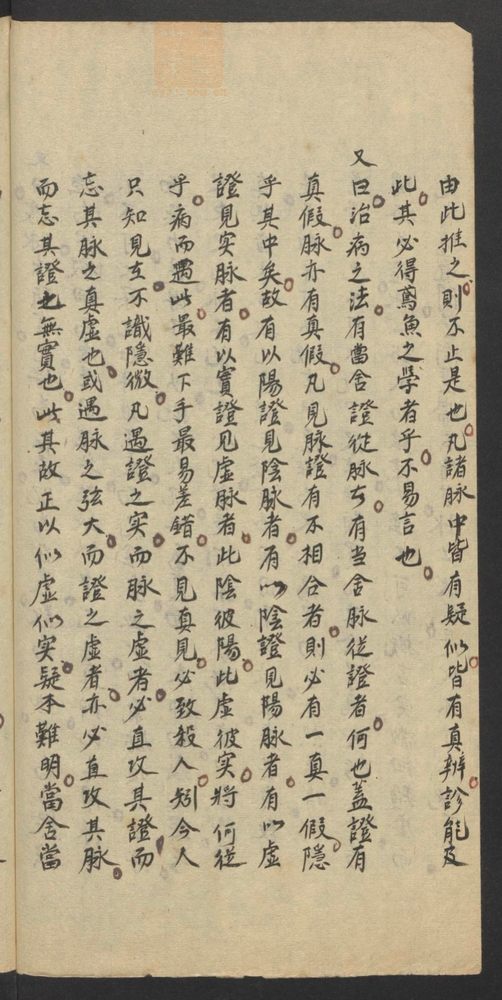 由此推之則不止是也凡諸脉中皆有疑似皆有真辨診能及
此其必得鳶魚之學者乎不易言也
又曰治病之法有當舍證從脉亦有当舍脉從證者何也蓋證有
真假脉亦有真假凡見脉證有不相合者則必有一真一假隱
乎其中矣故有以陽證見陰脉者有以陰證見陽脉者有以虚
證見实脉者有以實證见虚脉者此陰彼陽此虚彼实將何從
乎病而遇此最難下手最易差錯不見真見必致殺人矧今人
只知見在不識隱微凡遇證之实而脉之虚者必直攻其證而
忘其脉之真虚也或遇脉之弦大而證之虚者亦必直攻其脉
而忘其證之無實也此其故正以似虚似实疑本難明當舍當